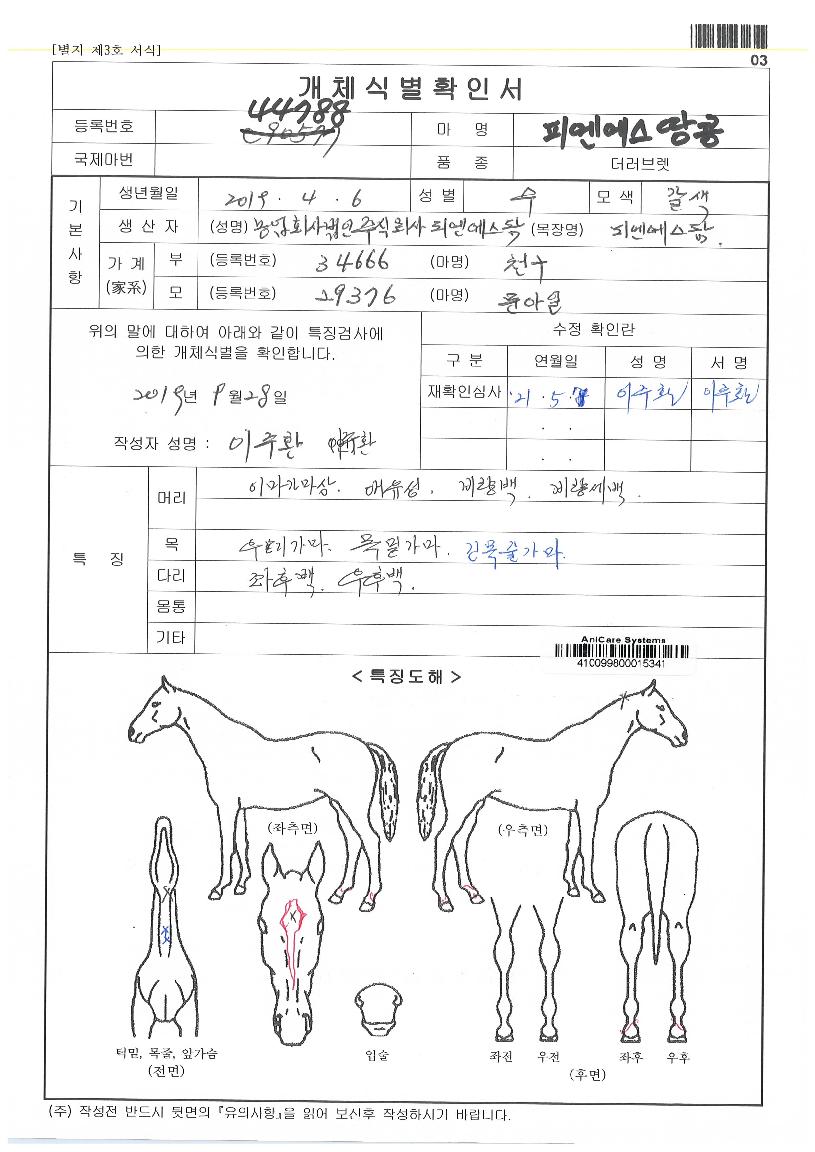 [별지 제3호 서식]
03
개체식별확인서
등록번호 44788 마 명 피엔에스땅콩
국제마번 품 종 더러브렛
기본사항
생년월일 2019 . 4 . 6 성 별 수 모 색 갈색
생 산 자 (성명) 농업회사법인주식회사 피엔에스팜 (목장명) 피엔에스팜.
가 계 (家系) 부 (등록번호) 34666 (마명) 천구
모 (등록번호) 29376 (마명)
위의 말에 대하여 아래와 같이 특징검사에
의한 개체식별을 확인합니다.
2019년 9월 28일
작성자 성명 : 이주환 이주환
수정 확인란
구 분 연월일 성 명 서 명
재확인심사 '21 . 5 . 이주환 이주환
. .
. .
특 징
머리 이마가마상. 비량백. 비량세백.
목 목밑가마. 긴목줄가마.
다리 좌후백. 우후백.
몸통
기타
AniCare Systems
410099800015341
< 특징도해 >
(좌측면) (우측면)
턱밑, 목줄, 앞가슴
(전면)
입술
좌전 우전 좌후 우후
(후면)
(주) 작성전 반드시 뒷면의 『유의사항』을 읽어 보신후 작성하시기 바랍니다.